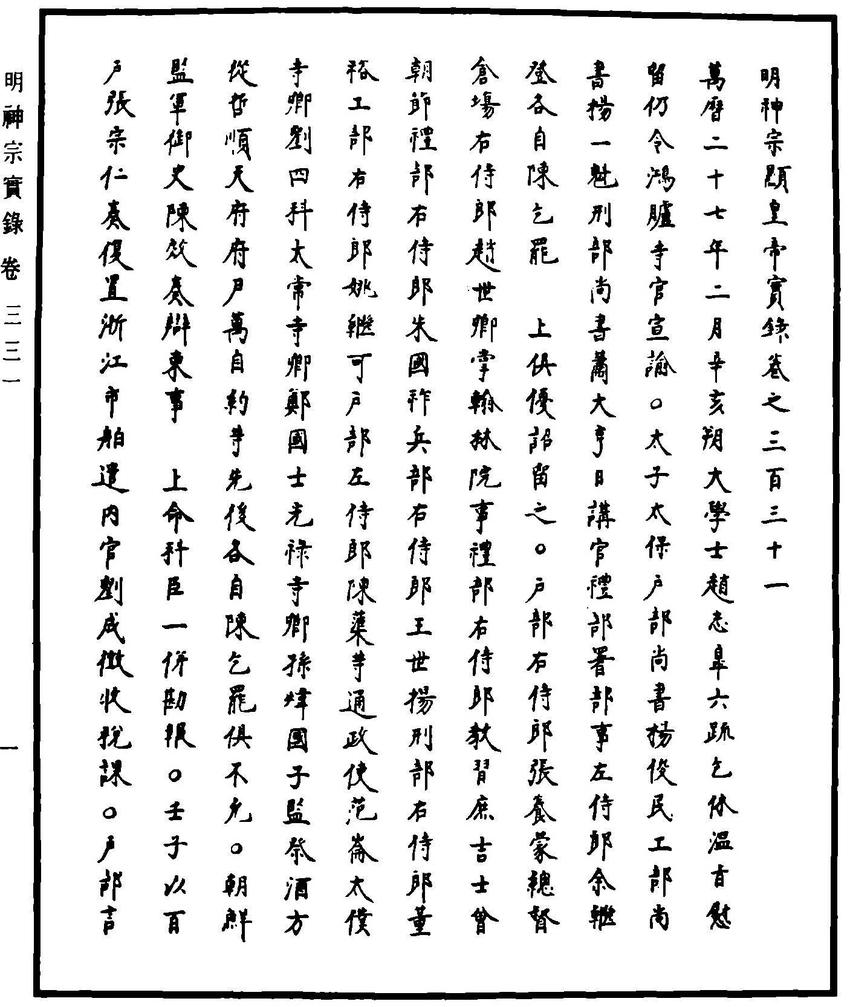 明神宗顯皇帝實錄卷之三百三十一
萬曆二十七年二月辛亥朔大學士趙志皐六疏乞休溫旨慰
留仍令鴻臚寺官宣諭○太子太保戶部尚書楊俊民工部尚
書楊一魁刑部尚書蕭大亨日講官禮部署部事左侍郎余繼
登各自陳乞罷　上俱優詔留之○戶部右侍郎張養蒙總督
倉場右侍郎趙世卿掌翰林院事禮部右侍郎敎習庶吉士曾
朝節禮部右侍郎朱國祚兵部右侍郎王世揚刑部右侍郎董
裕工部右侍郎姚繼可戶部左侍郎陳蕖等通政使范崙太僕
寺卿劉四科太常寺卿鄭國士光祿寺卿孫煒國子監祭酒方
從哲順天府府尹萬自約等先後各自陳乞罷俱不允○朝鮮
監軍御史陳效奏辯東事　上命科臣一倂勘報○壬子以百
戶張宗仁奏復置浙江市舶遣內官劉成徵收稅課○戶部言
明神宗實錄卷三三一
一